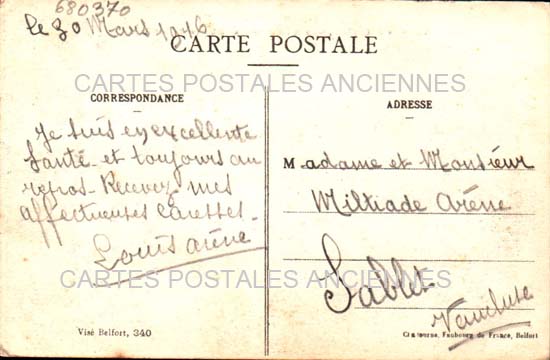 680370
le 30 Mars 1916
CARTE POSTALE
CARTES POSTALES ANCIENNES
CORRESPONDANCE
Je suis en excellente
Santé et toujours au
repos. Recevez mes
affectueuses caresses.
Louis arène
ADRESSE
Madame et Monsieur
Miltiade Arène
Sablet
Vaucluse
CARTES POSTALES ANCIENNES
Visé Belfort, 340
Faubourg de France, Belfort